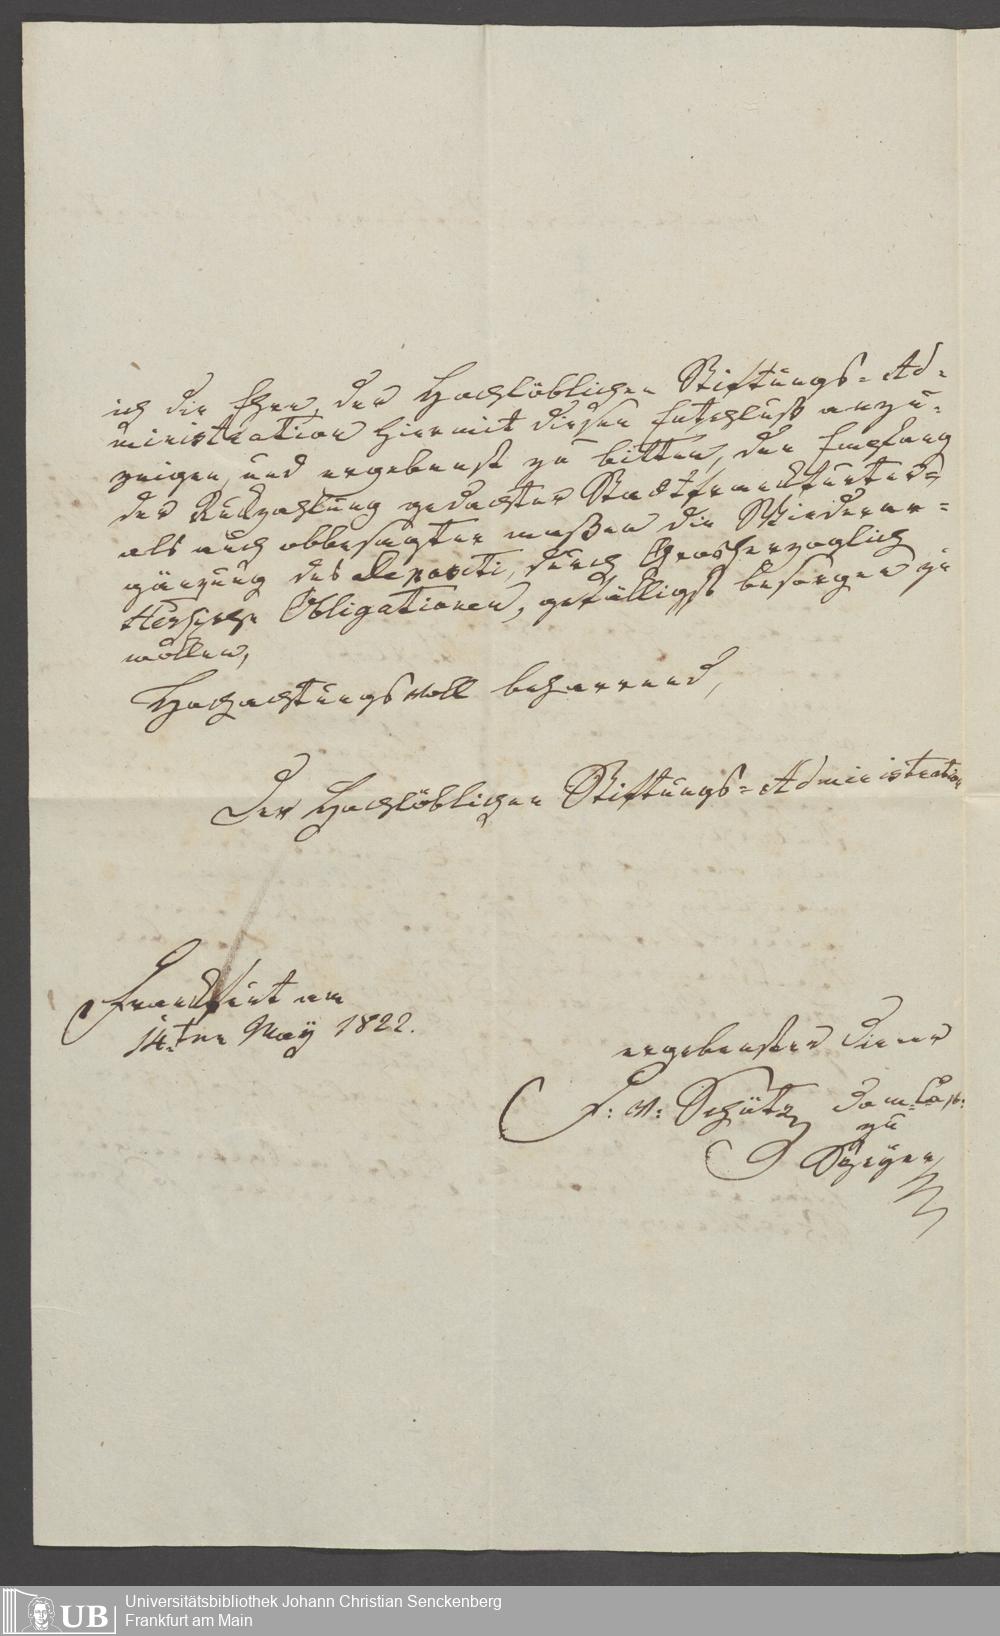 ich die Ehre, der Hochlöblichen Stiftungs=Ad=
ministration hiermit diesen Entschluß anzu=
zeigen, und ergebenst zu bitten, den Empfang
der Rückzahlung gedachter Stadtfranckfurter=
als auch obbesagter maßen die Wiederer=
gänzung des Depositi, durch Grosherzoglich
Hessische Obligationen, gefälligst besorgen zu
wollen,
Hochachtungsvoll beharrend,
Der Hochlöblichen Stiftungs=Administration
Franckfurt am
14.ten May 1822.
ergebenster Diener
F: v: Schütz Dom=Cap:
zu
Speyer
UB
Universitätsbibliothek Johann Christian Senckenberg
Frankfurt am Main